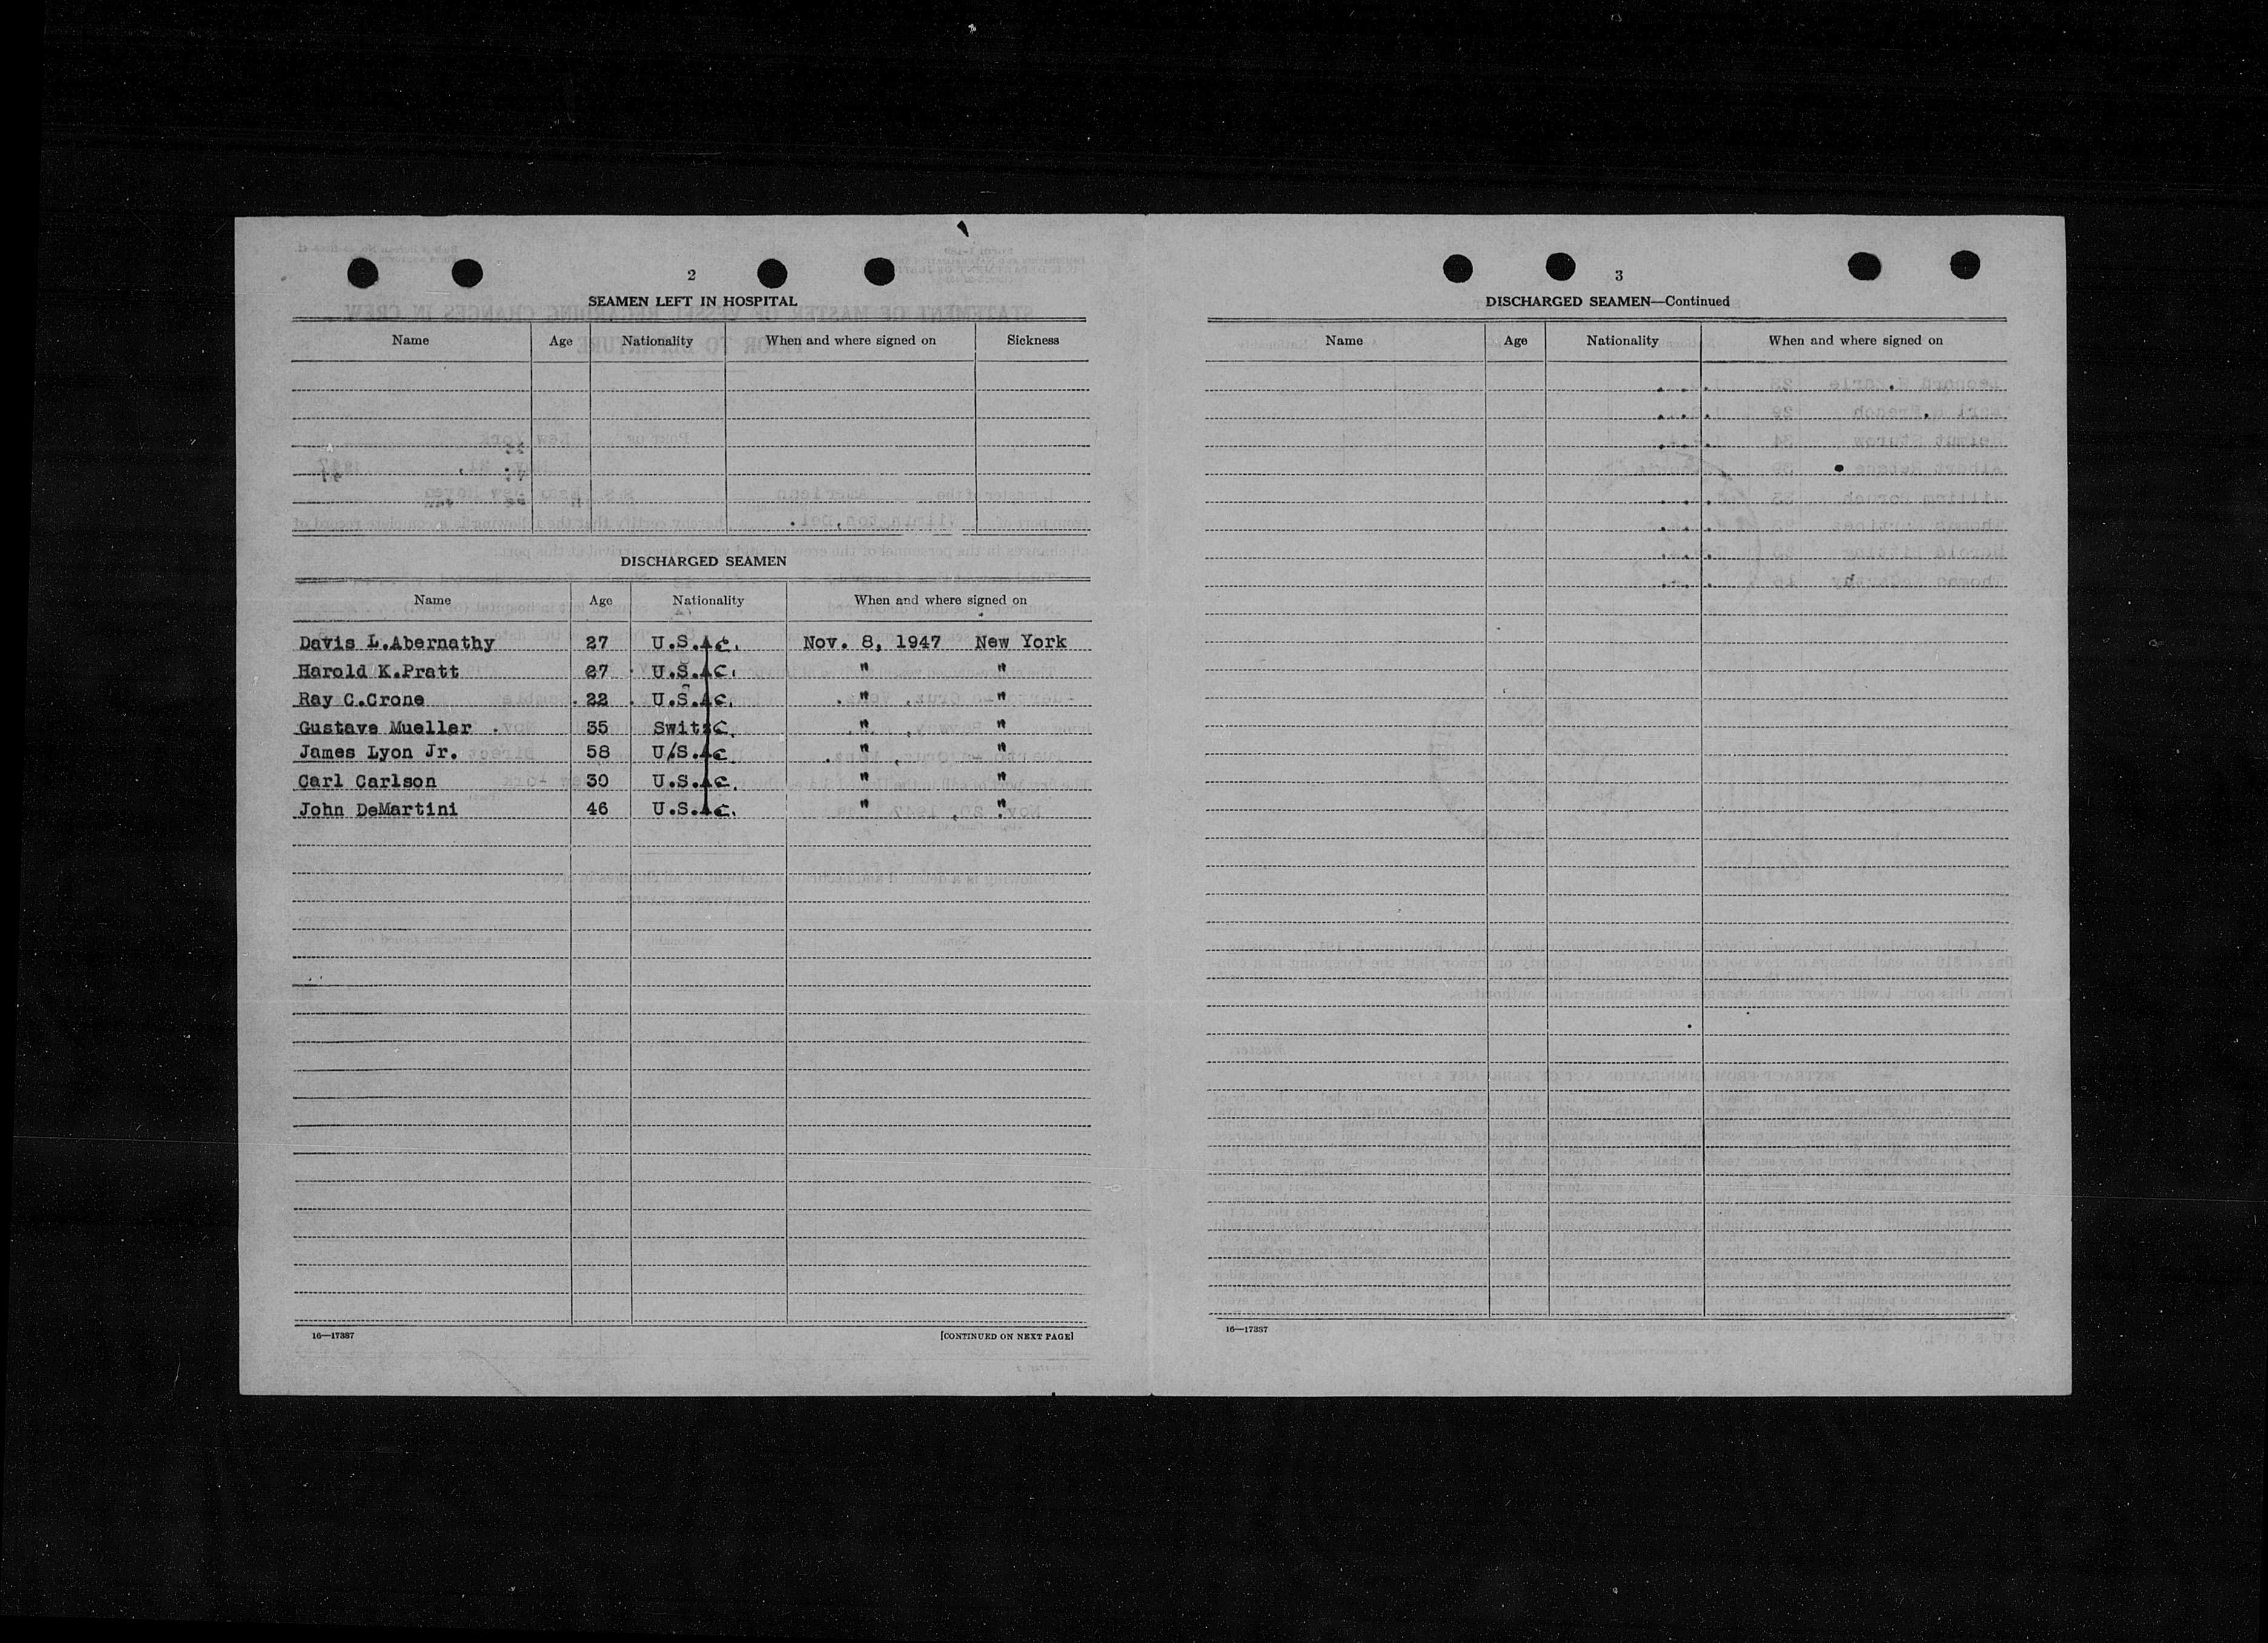 2
SEAMEN LEFT IN HOSPITAL
Name Age Nationality When and where signed on Sickness
DISCHARGED SEAMEN
Name Age Nationality When and where signed on
Davis L.Abernathy 27 U.S.A C. Nov. 8, 1947 New York
Harold K.Pratt 27 U.S.A C. " "
Ray C.Crone 22 U.S.A C. " "
Gustave Mueller 35 Switz C. " "
James Lyon Jr. 58 U/S.A C " "
Carl Carlson 30 U.S.A C. " "
John DeMartini 46 U.S.A C. " "
16—17387 [CONTINUED ON NEXT PAGE]
3
DISCHARGED SEAMEN—Continued
Name Age Nationality When and where signed on
16—17387